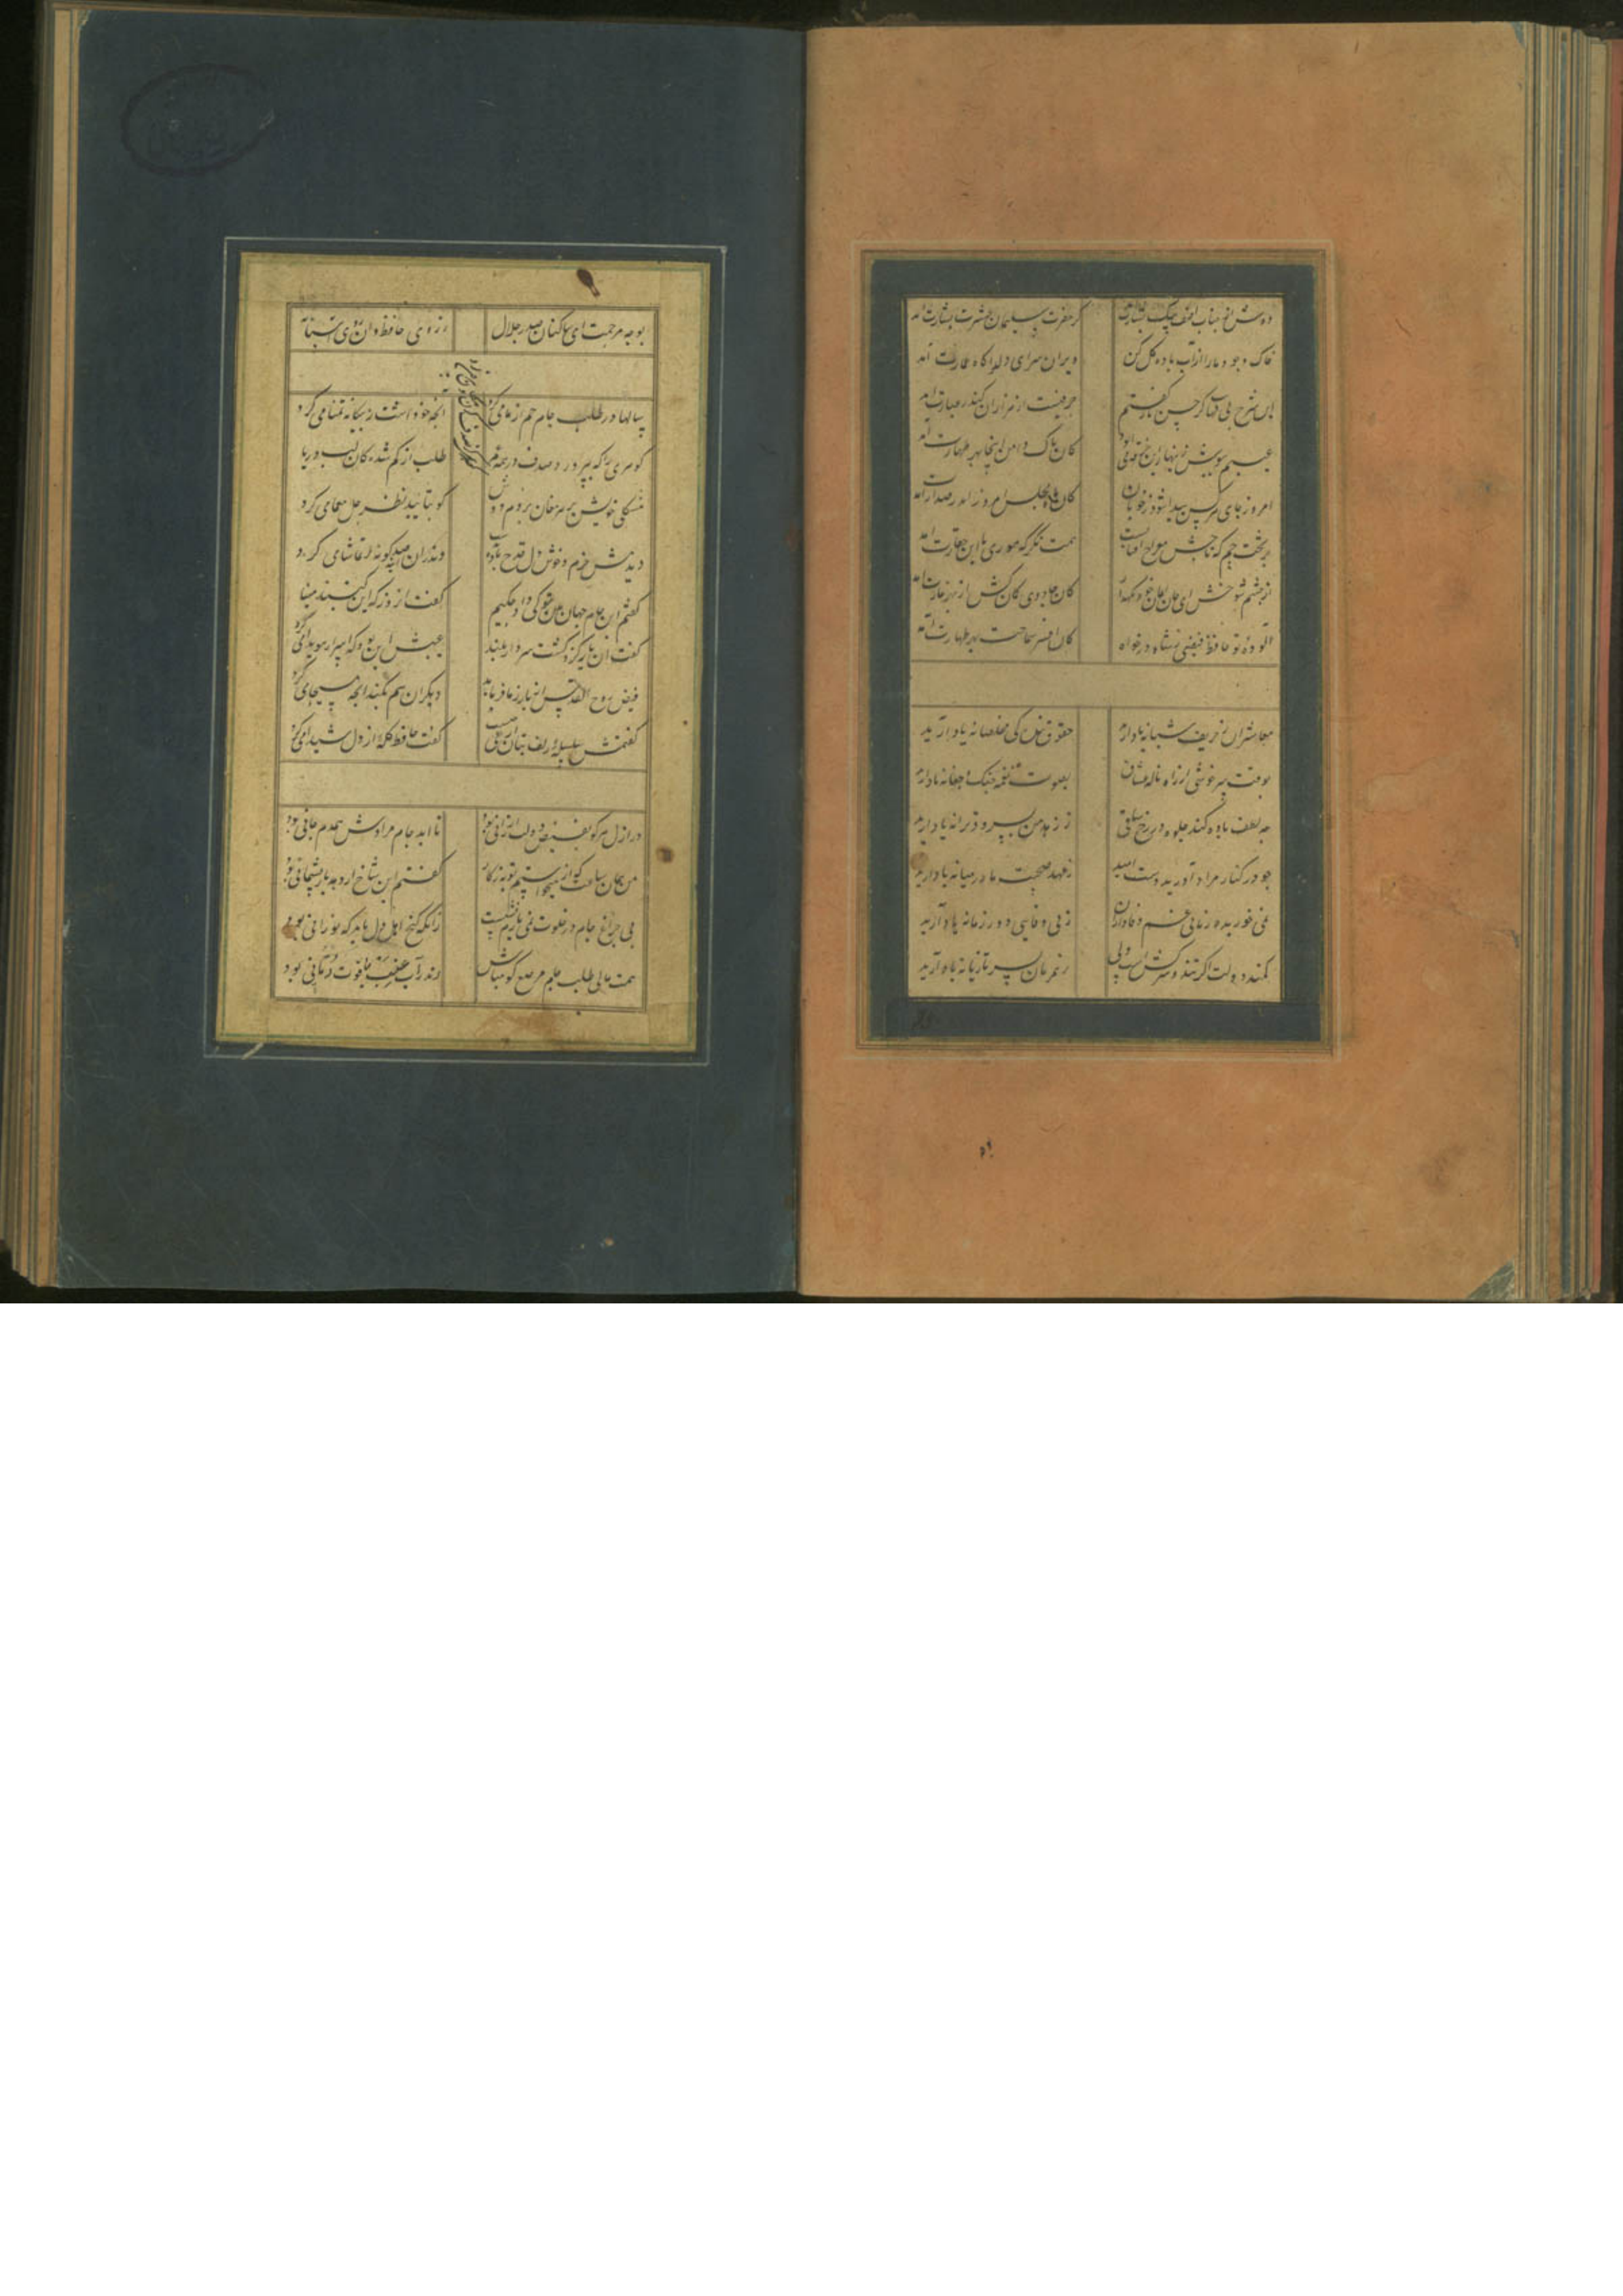 دوش از جناب آصف پیک بشارت آمد
کز حضرت سلیمان عشرت بشارت آمد
خاک وجود ما را از آب باده گل کن
ویران سرای دل را گاه عمارت آمد
این شرح بی نهایت کز حسن یار گفتم
حرفیست از هزاران کاندر عبارت آمد
عیبم بپوش زنهار ای خرقه می آلود
کان پاک دامن اینجا بهر طهارت آمد
امروز جای هر کس پیدا شود ز خوبان
کان ماه مجلس افروز اندر صدارت آمد
بر تخت جم که تاجش معراج آفتابست
همت نگر که موری با این حقارت آمد
از چشم شوخش ای دل ایمان خود نگهدار
کان جادوی کمان کش از بهر غارت آمد
آلوده تو حافظ فیضی ز شاه درخواه
کان سماحت بهر طهارت آمد
معاشران ز حریف شبانه یاد آرید
حقوق بندگی مخلصانه یاد آرید
بوقت سرخوشی از آه و ناله عشاق
بصوت نغمه چنک و چغانه یاد آرید
چو لطف باده کند جلوه در رخ ساقی
ز سرود و ترانه یاد آرید
چو در کنار مراد آورید دست امید
ز عهد صحبت ما در میانه یاد آرید
نمی خورید زمانی غم وفاداران
ز بی وفایی دور زمانه یاد آرید
سمند دولت اگر تند و سرکش است ولی
ز همرهان بسر تازیانه یاد آرید
بوجه مرحمت ای ساکنان صدر جلال
ز روی حافظ و آن آستانه
سالها در طلب جام جم از ما می کرد
آنچه خود داشت ز بیگانه تمنا می کرد
گوهری را که بپرورد صدف در همه عمر
طلب از گم شدگان لب دریا
مشکل خویش بر پیر مغان بردم دوش
کو بتایید نظر حل معما می کرد
دیدمش خرم و خوش دل قدح باده بدست
وندران آینه صد گونه تماشا می کرد
گفتم این جام جهان بین بتو کی داد حکیم
گفت آن روز که این گنبد مینا
گفت آن یار کزو گشت سر دار بلند
عیبش این بود که اسرار هویدا می کرد
فیض روح القدس ار باز مدد فرماید
دیگران هم بکنند آنچه مسیحا می کرد
گفتمش سلسله زلف بتان از پی چیست
گفت حافظ گله از دل شیدا می کرد
در ازل هر کو بفیض دولت ارزانی بود
تا ابد جام مرادش همدم جانی بود
من همان ساعت که از می خواستم شد توبه کار
گفتم این شاخ ار دهد بار پشیمانی بود
بی چراغ جام در خلوت نمی یارم نشست
زانکه کنج اهل دل باید که نورانی بود
همت عالی طلب جام مرصع گو مباش
رند را آب عنب یاقوت رمانی بود